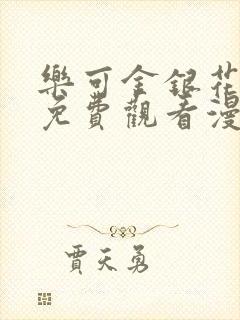 樂可金銀花
免費觀看漫
賈天勇